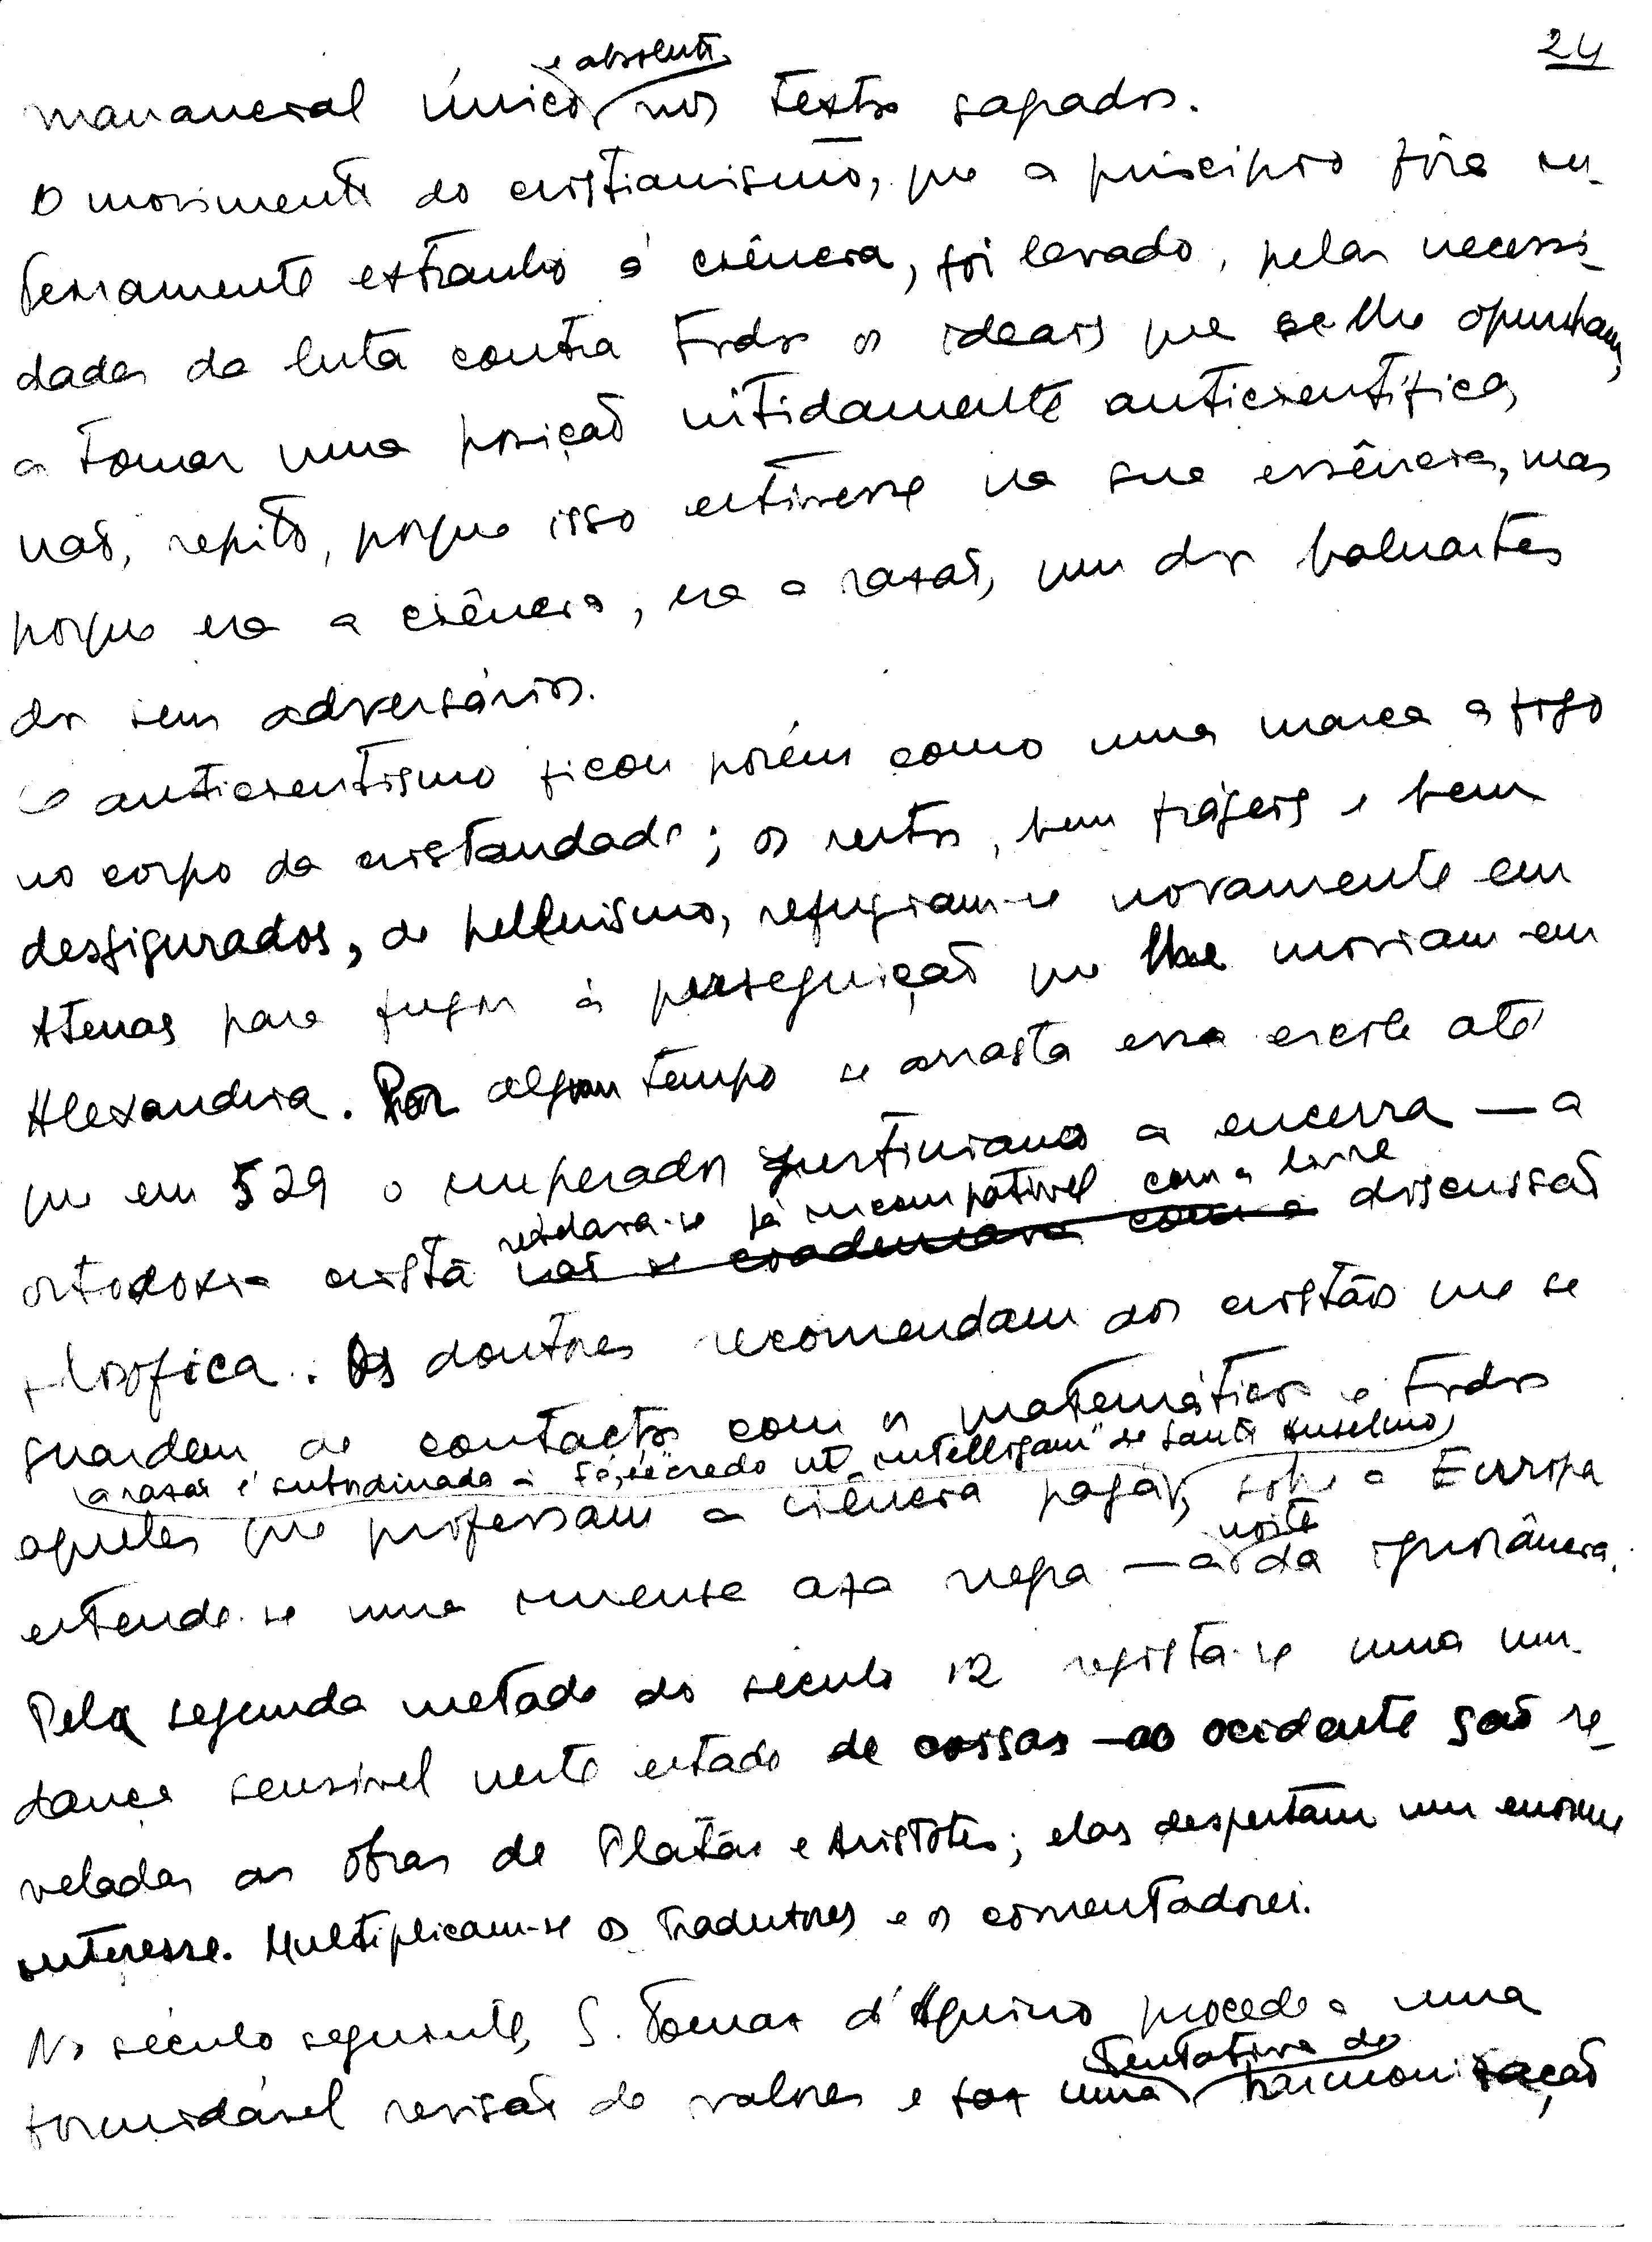 24
manancial único e absoluto nos textos sagrados.
O movimento do cristianismo, que a princípio fôra in-
teiramente estranho à ciência, foi levado, pelas necessi-
dades da luta contra todos os ideais que se lhe opunham,
a tomar uma posição nitidamente anticientífica,
não, repito, porque isso estivesse na sua essência, mas
porque era a ciência, era a razão, um dos baluartes
dos seus adversários.
O anticientismo ficou porém como uma marca a fogo
no corpo da cristandade; os restos, bem frágeis e bem
desfigurados, do helenismo, refugiam-se novamente em
Atenas para fugir à perseguição que lhe moviam em
Alexandria. Por algum tempo se arrasta essa escola até
que em 529 o imperador Justiniano a encerra — a
ortodoxia cristã ~~não se coadunava com a~~ revelara-se já incompatível com a livre discussão
filosófica. Os doutores recomendam aos cristãos que se
guardem de contactos com os matemáticos e todos
aqueles que professam a ciência pagã, (a razão é subordinada à fé, é o "credo ut intelligam" de Santo Anselmo) sobre a Europa
estende-se uma imensa asa negra — a noite da ignorância.
Pela segunda metade do século 12 regista-se uma mu-
dança sensível neste estado de coisas — ao ocidente são re-
veladas as obras de Platão e Aristóteles; elas despertam um enorme
interesse. Multiplicam-se os tradutores e os comentadores.
No século seguinte, S. Tomaz d'Aquino procede a uma
formidável revisão de valores e faz uma tentativa de harmonização,